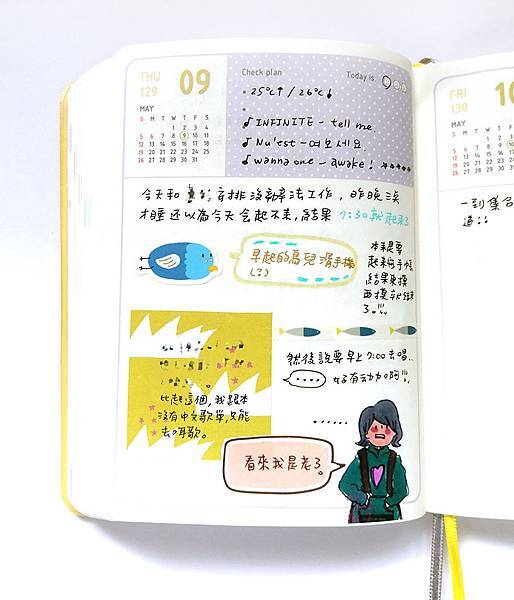 THU
129
09
MAY
S M T W T F S
1 2 3 4
5 6 7 8 9 10 11
12 13 14 15 16 17 18
19 20 21 22 23 24 25
26 27 28 29 30 31
Check plan
Today is.
25℃↑/26℃↓
♪INFINITE - tell me.
♪Nu'est - 여보세요.
♪wanna one - awake! ★★★★★
今天和 排沒辦法工作,昨晚
才睡还以為今天会起不来,結果 7:30就起来了
早起的鳥兒滑手機
(?)
本来是要
起来
結果
了。!!!
然後說要早上9:00去唱..
(....) 好有动力啊!!!
......
比起這個,我根本
沒有中文歌單,只能
去 歌。
看來我是老了。
FRI
130
10
MAY
S M
5 6
12 13
19 20
26 27
一到集合